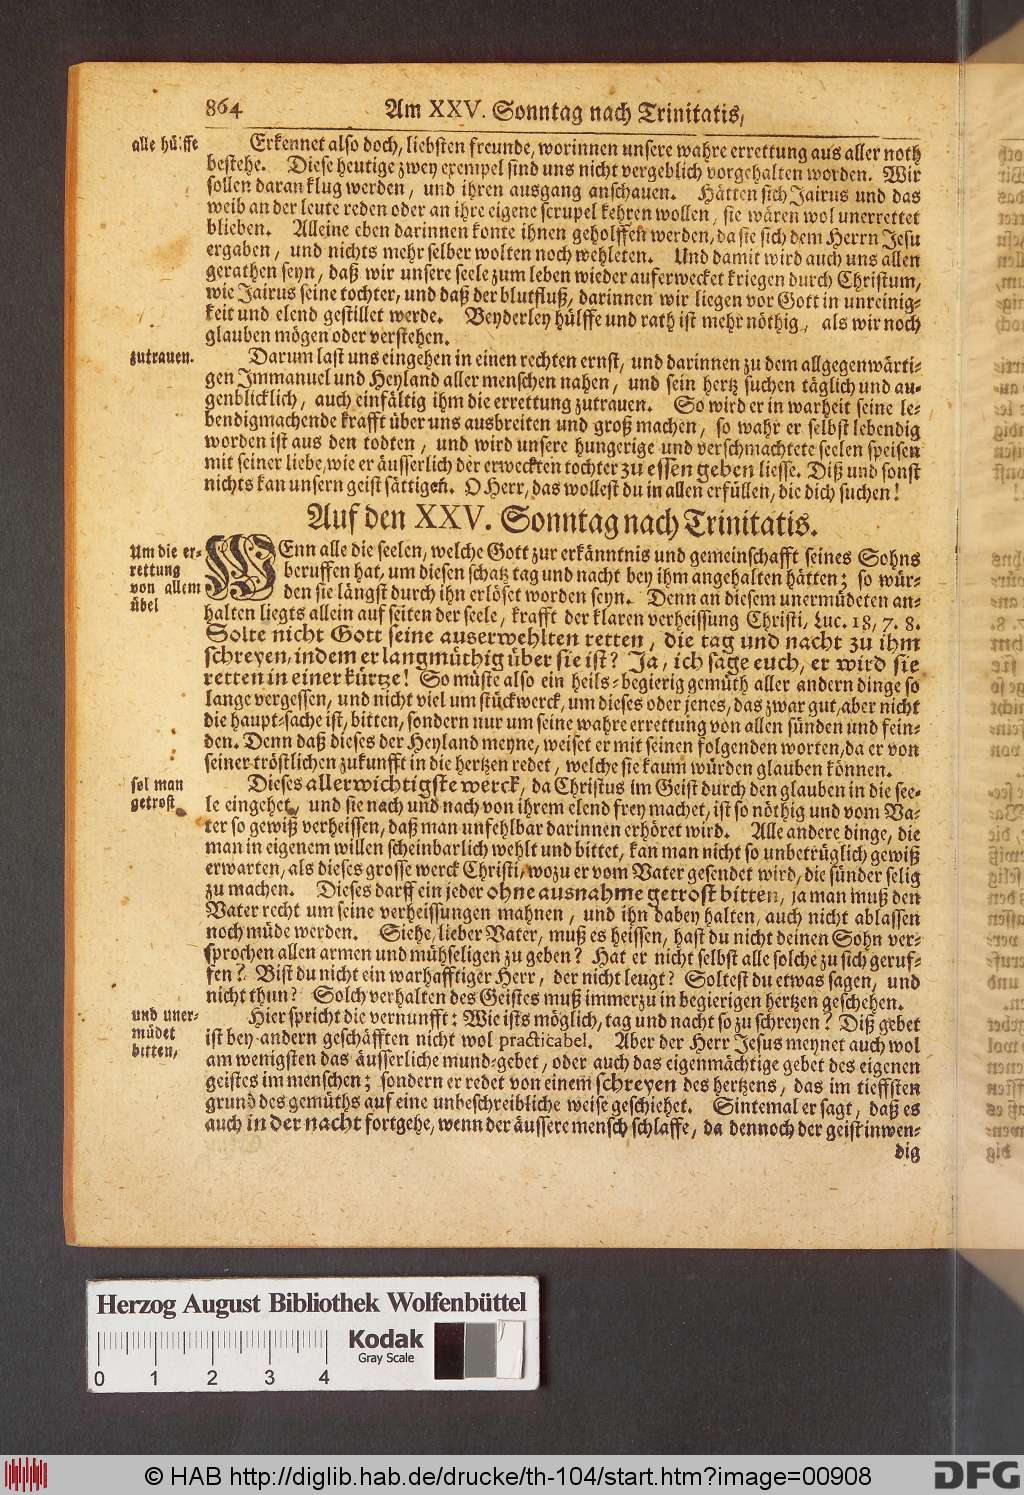 864 Am XXV. Sonntag nach Trinitatis,
alle hülffe
Erkennet also doch, liebsten freunde, worinnen unsere wahre errettung aus aller noth
bestehe. Diese heutige zwey exempel sind uns nicht vergeblich vorgehalten worden. Wir
sollen daran klug werden, und ihren ausgang anschauen. Hätten sich Jairus und das
weib an der leute reden oder an ihre eigene scrupel kehren wollen, sie wären wol unerrettet
blieben. Alleine eben darinnen konte ihnen geholffen werden, da sie sich dem Herrn Jesu
ergaben, und nichts mehr selber wolten noch wehleten. Und damit wird auch uns allen
gerathen seyn, daß wir unsere seele zum leben wieder auferwecket kriegen durch Christum,
wie Jairus seine tochter, und daß der blutfluß, darinnen wir liegen vor Gott in unreinig-
keit und elend gestillet werde. Beyderley hülffe und rath ist mehr nöthig, als wir noch
glauben mögen oder verstehen.
zutrauen.
Darum last uns eingehen in einen rechten ernst, und darinnen zu dem allgegenwärti-
gen Immanuel und Heyland aller menschen nahen, und sein hertz suchen täglich und au-
genblicklich, auch einfältig ihm die errettung zutrauen. So wird er in warheit seine le-
bendigmachende krafft über uns ausbreiten und groß machen, so wahr er selbst lebendig
worden ist aus den todten, und wird unsere hungerige und verschmachtete seelen speisen
mit seiner liebe, wie er äusserlich der erweckten tochter zu essen geben liesse. Diß und sonst
nichts kan unsern geist sättigen. O Herr, das wollest du in allen erfüllen, die dich suchen!
Auf den XXV. Sonntag nach Trinitatis.
Um die er-
rettung
von allem
übel
WEnn alle die seelen, welche Gott zur erkänntnis und gemeinschafft seines Sohns
beruffen hat, um diesen schatz tag und nacht bey ihm angehalten hätten; so wür-
den sie längst durch ihn erlöset worden seyn. Denn an diesem unermüdeten an-
halten liegts allein auf seiten der seele, krafft der klaren verheissung Christi, Luc. 18, 7. 8.
Solte nicht Gott seine auserwehlten retten, die tag und nacht zu ihm
schreyen, indem er langmüthig über sie ist? Ja, ich sage euch, er wird sie
retten in einer kürtze! So müste also ein heils-begierig gemüth aller andern dinge so
lange vergessen, und nicht viel um stückwerck, um dieses oder jenes, das zwar gut, aber nicht
die haupt-sache ist, bitten, sondern nur um seine wahre errettung von allen sünden und fein-
den. Denn daß dieses der Heyland meyne, weiset er mit seinen folgenden worten, da er von
seiner tröstlichen zukunfft in die hertzen redet, welche sie kaum würden glauben können.
sol man
getrost
Dieses allerwichtigste werck, da Christus im Geist durch den glauben in die see-
le eingehet, und sie nach und nach von ihrem elend frey machet, ist so nöthig und vom Va-
ter so gewiß verheissen, daß man unfehlbar darinnen erhöret wird. Alle andere dinge, die
man in eigenem willen scheinbarlich wehlt und bittet, kan man nicht so unbetrüglich gewiß
erwarten, als dieses grosse werck Christi, wozu er vom Vater gesendet wird, die sünder selig
zu machen. Dieses darff ein jeder ohne ausnahme getrost bitten, ja man muß den
Vater recht um seine verheissungen mahnen, und ihn dabey halten, auch nicht ablassen
noch müde werden. Siehe, lieber Vater, muß es heissen, hast du nicht deinen Sohn ver-
sprochen allen armen und mühseligen zu geben? Hat er nicht selbst alle solche zu sich geruf-
fen? Bist du nicht ein warhafftiger Herr, der nicht leugt? Soltest du etwas sagen, und
nicht thun? Solch verhalten des Geistes muß immerzu in begierigen hertzen geschehen.
und uner-
müdet
bitten,
Hier spricht die vernunfft: Wie ists möglich, tag und nacht so zu schreyen? Diß gebet
ist bey andern geschäfften nicht wol practicabel. Aber der Herr Jesus meynet auch wol
am wenigsten das äusserliche mund-gebet, oder auch das eigenmächtige gebet des eigenen
geistes im menschen; sondern er redet von einem schreyen des hertzens, das im tieffsten
grund des gemüths auf eine unbeschreibliche weise geschiehet. Sintemal er sagt, daß es
auch in der nacht fortgehe, wenn der äussere mensch schlaffe, da dennoch der geist inwen-
dig
Herzog August Bibliothek Wolfenbüttel
Kodak
Gray Scale
0 1 2 3 4
© HAB http://diglib.hab.de/drucke/th-104/start.htm?image=00908
DFG